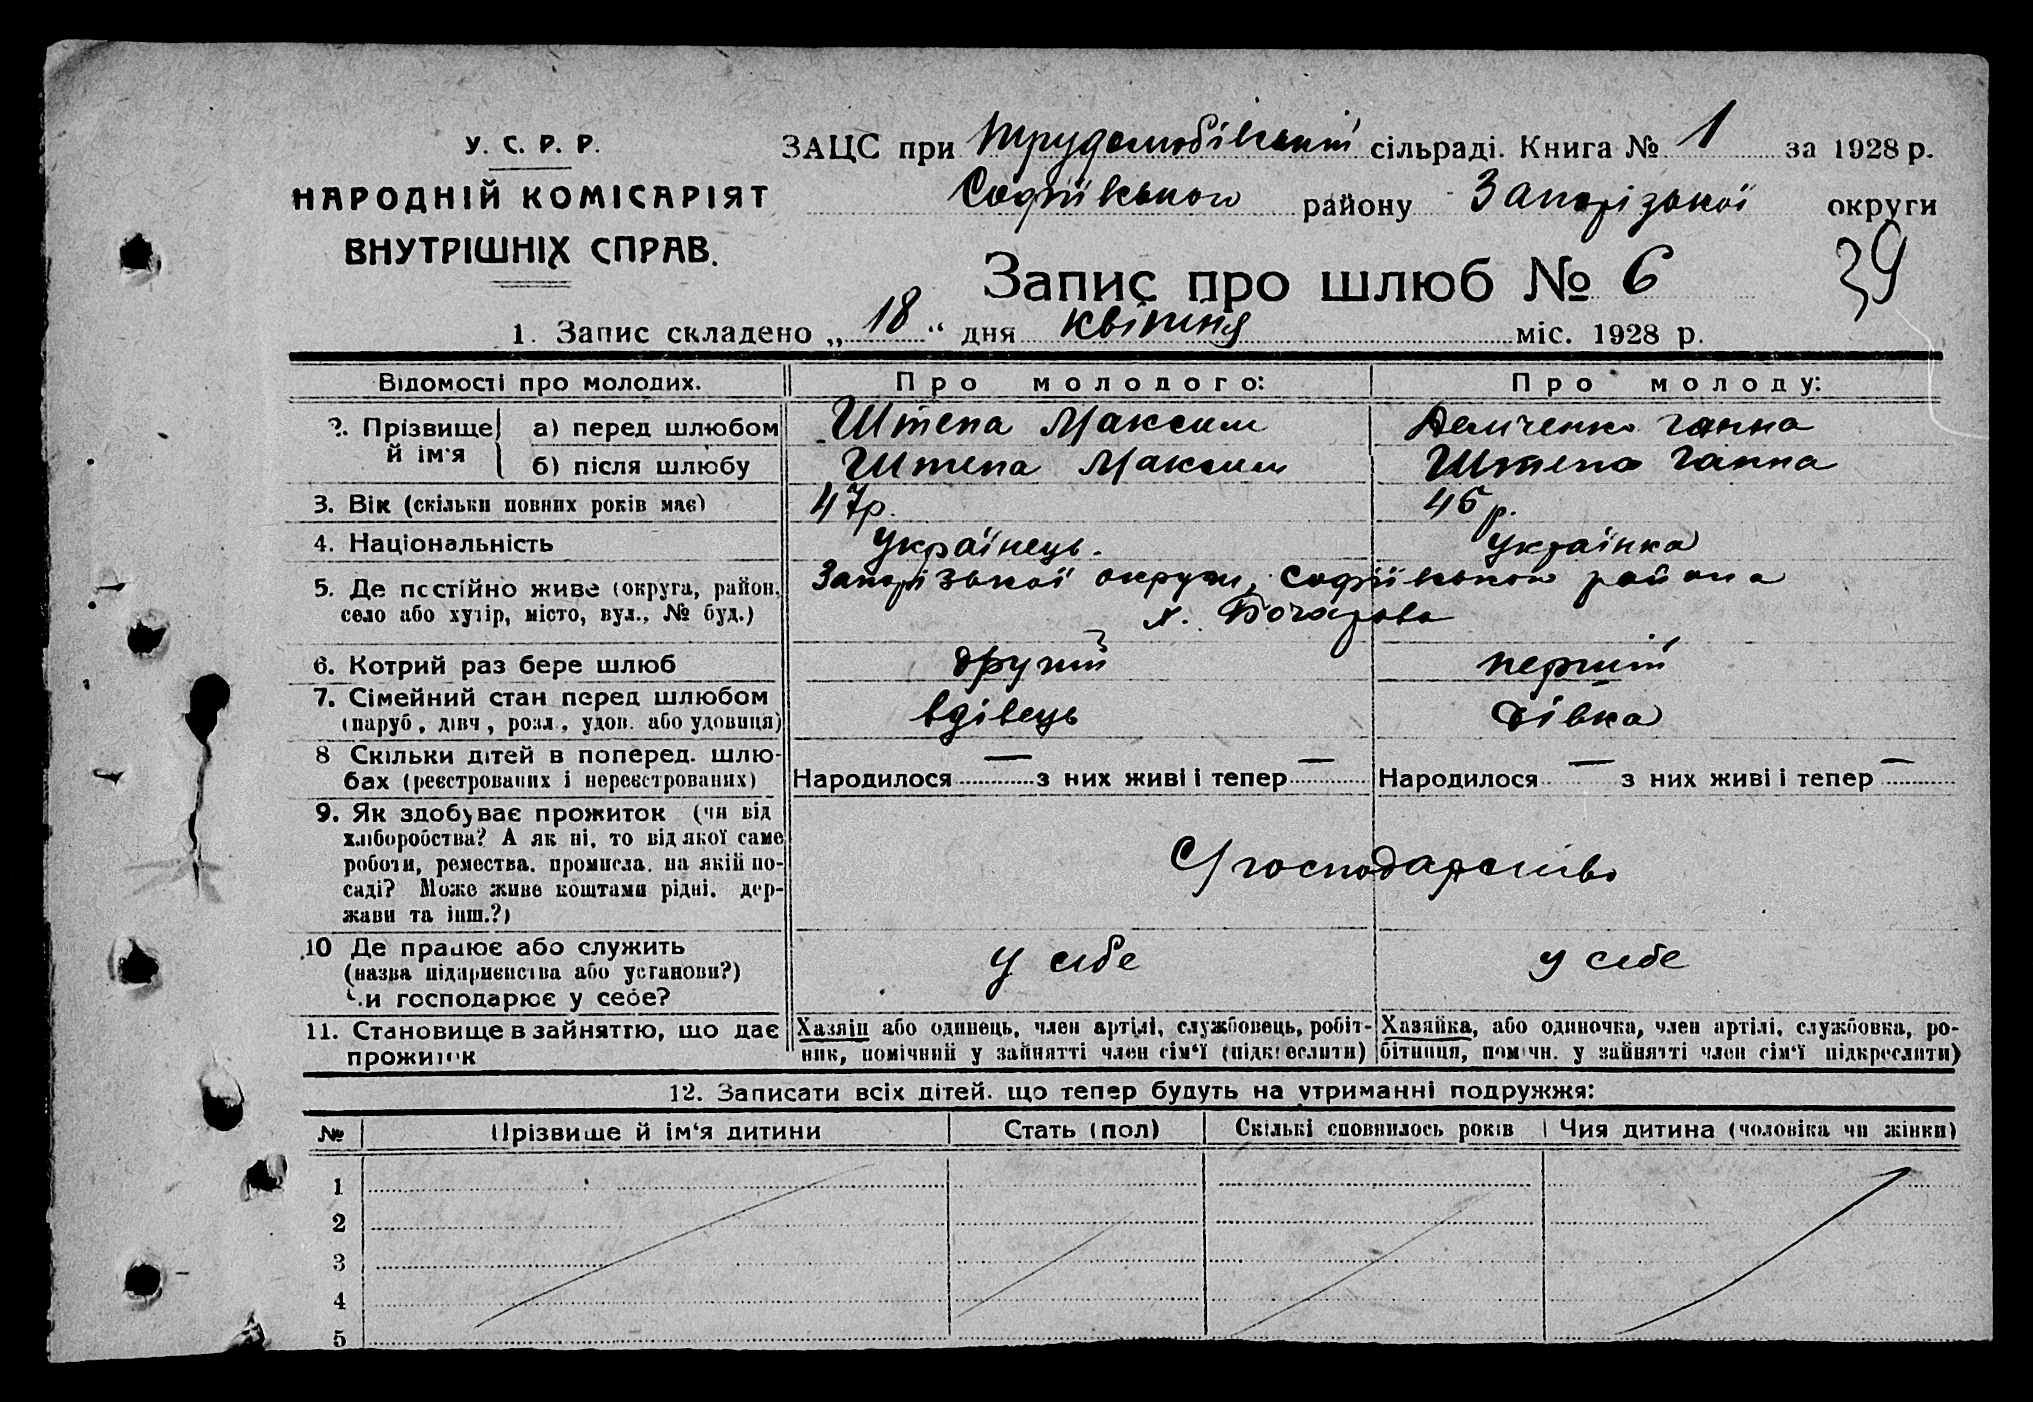 У. С. Р. Р.
НАРОДНІЙ КОМІСАРІЯТ
ВНУТРІШНІХ СПРАВ.
ЗАЦС при Трудолюбівській сільраді. Книга № 1 за 1928 р.
Софіївького району Запорізької округи
39
Запис про шлюб № 6
1. Запис складено „ 18 “ дня квітня міс. 1928 р.
Відомості про молодих. Про молодого: Про молоду:
2. Прізвище й ім'я а) перед шлюбом Штепа Максим Демченко Ганна
б) після шлюбу Штепа Максим Штепа Ганна
3. Вік (скільки повних років має) 47р. 45 р.
4. Національність Українець. Українка
5. Де постійно живе (округа, район, Запорізької округи, Софіївького района
село або хутір, місто, вул., № буд.) х. Бочарово
6. Котрий раз бере шлюб другий перший
7. Сімейний стан перед шлюбом вдівець дівка
(паруб., дівч., розл., удов. або удовиця)
8 Скільки дітей в поперед. шлю-
бах (реєстрованих і нереєстрованих) Народилося — з них живі і тепер — Народилося — з них живі і тепер —
9. Як здобуває прожиток (чи від
хліборобства? А як ні, то від якої саме
роботи, ремества, промисла, на якій по- С/господарство
саді? Може живе коштами рідні, дер-
жави та інш.?)
10 Де працює або служить у себе у себе
(назва підприємства або установи?)
Чи господарює у себе?
11. Становище в зайняттю, що дає Хазяїн або одинець, член артілі, службовець, робіт- Хазяйка, або одиночка, член артілі, службовка, ро-
прожиток ник, помічний у зайнятті член сім‘ї (підкреслити) бітниця, помічн. у зайнятті член сім‘ї підкреслити)
12. Записати всіх дітей. що тепер будуть на утриманні подружжя:
№ Прізвище й ім‘я дитини Стать (пол) Скількі сповнилось років Чия дитина (чоловіка чи жінки)
1
2
3
4
5